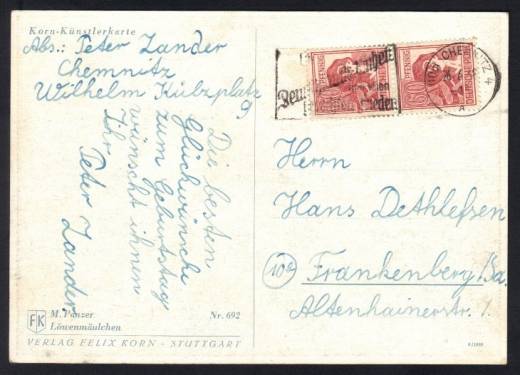 Korn-Künstlerkarte
Abs.: Peter Zander
Chemnitz
Wilhelm Külzplatz
9
Die besten
Glückwünsche
zum Geburtstag
wünscht ihnen
Ihr
Peter Zander
M. Panzer
Löwenmäulchen
Nr. 692
FK
VERLAG FELIX KORN - STUTTGART
PFENNIG
CHEMNITZ 4
Herrn
Hans Dethlefsen
(10a) Frankenberg/Sa.
Altenhainerstr.